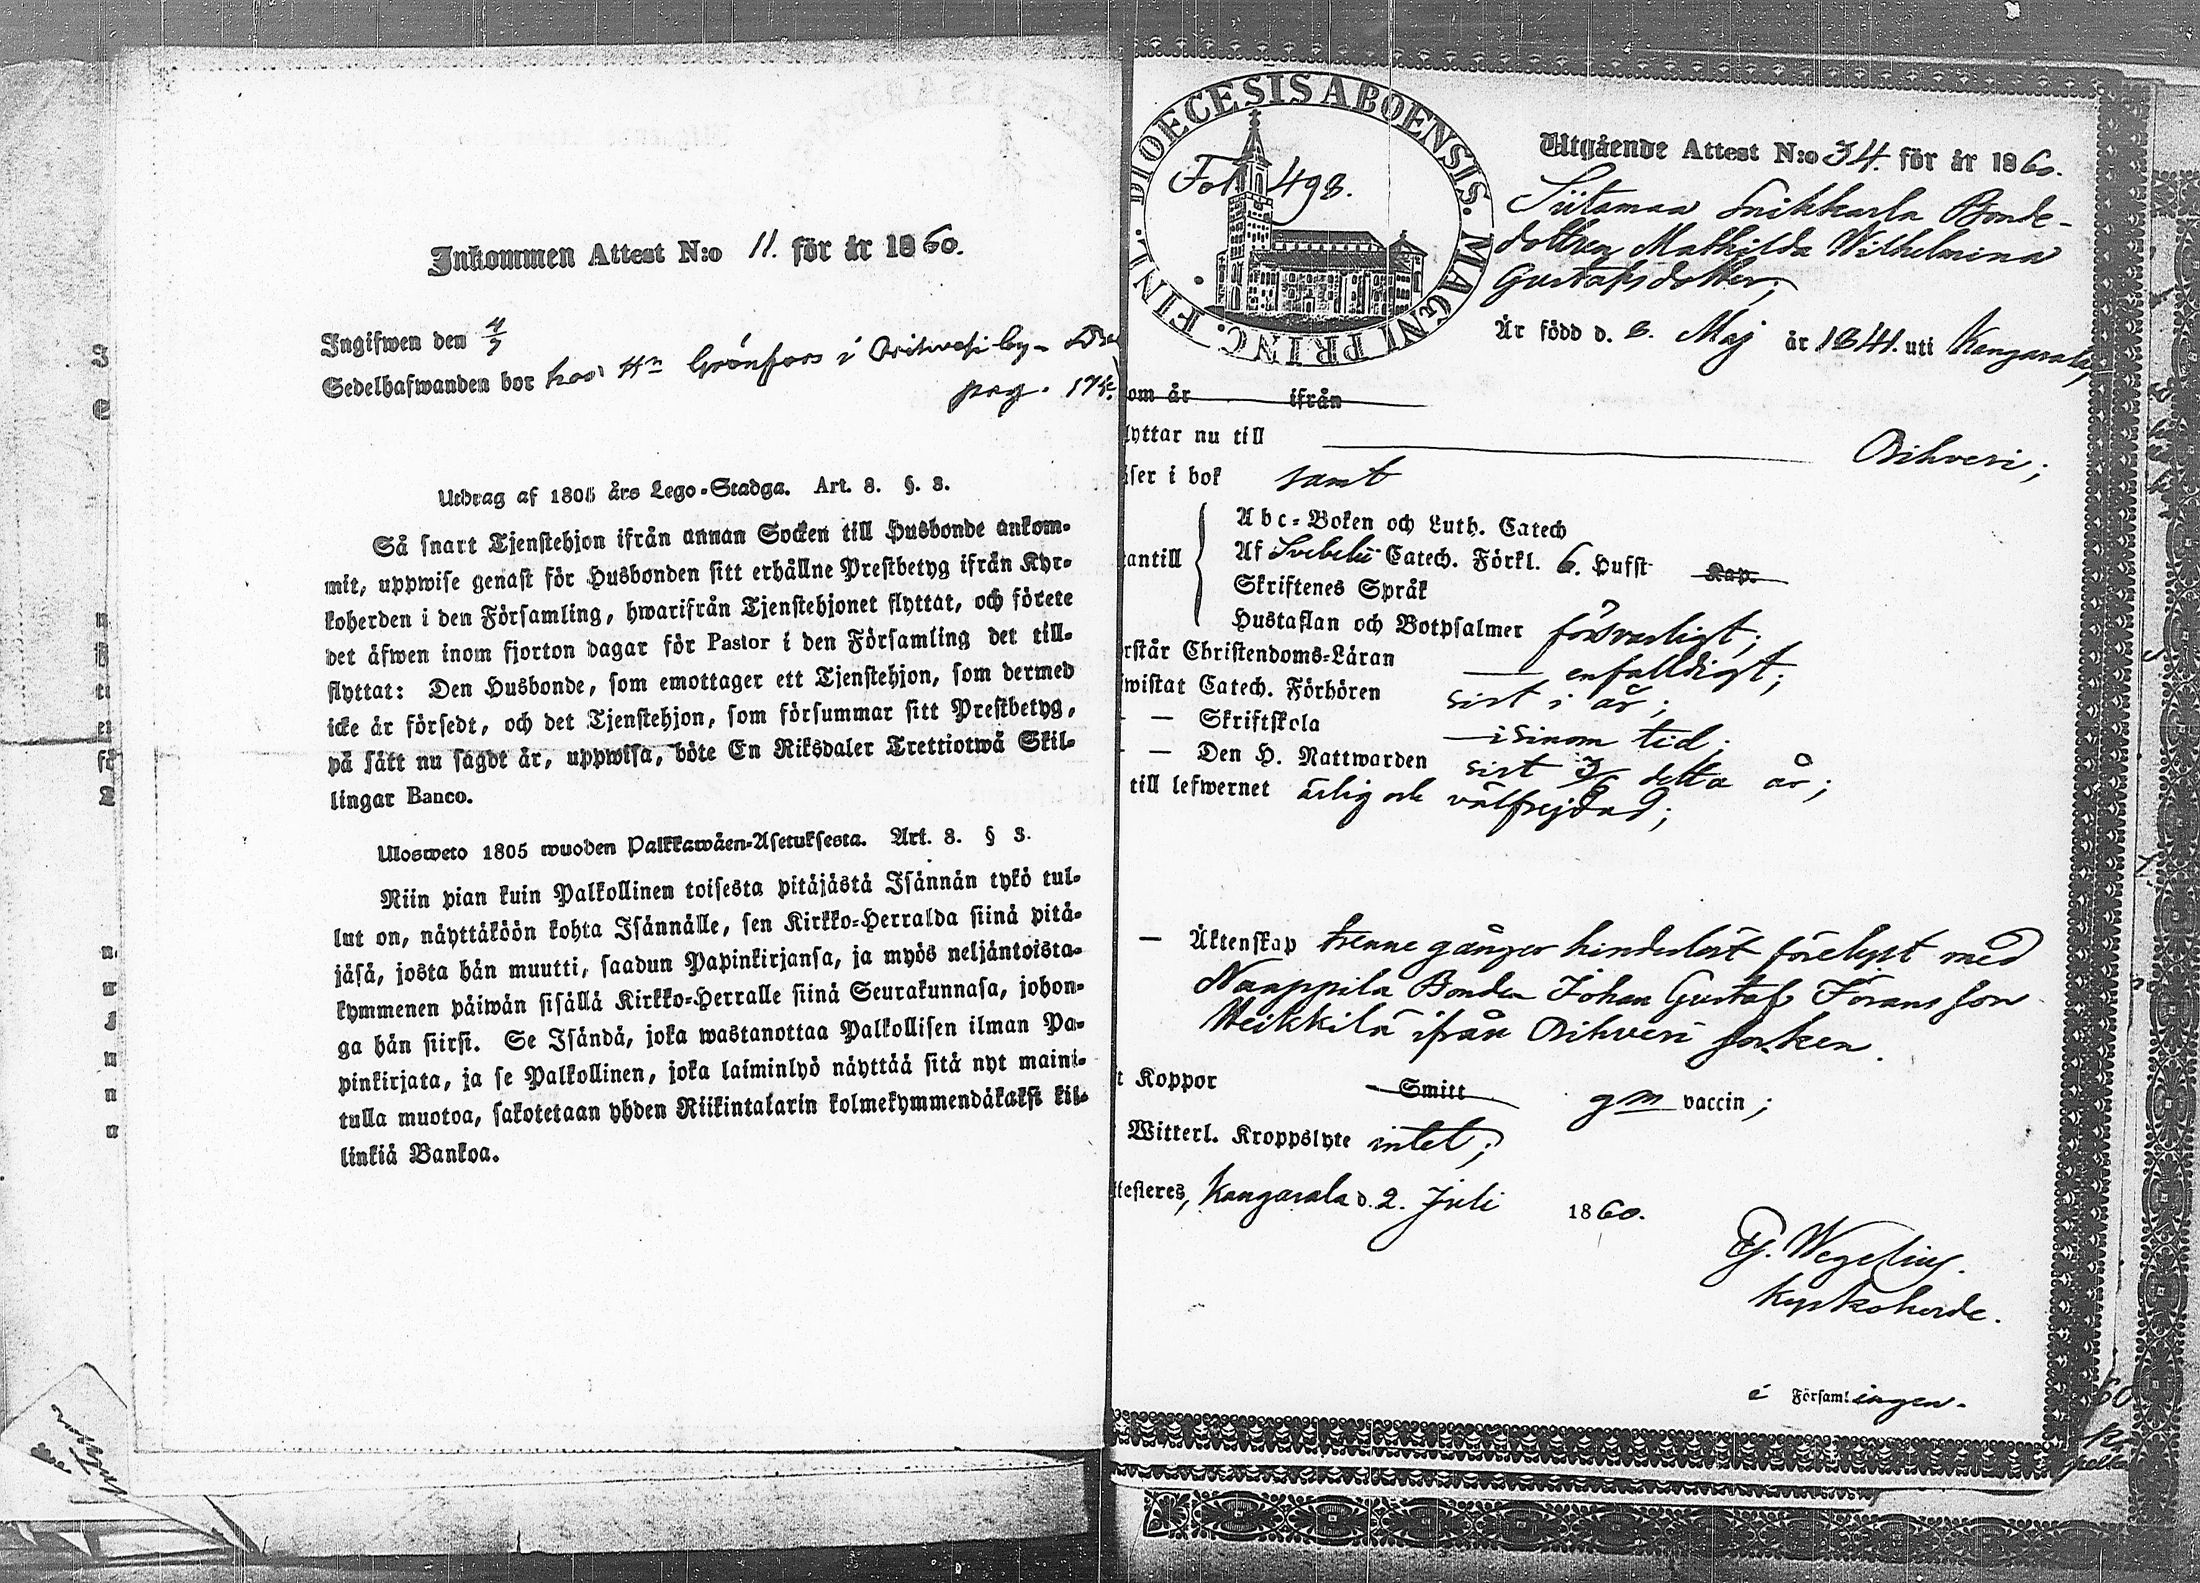 Inkommen Attest N:o 11. för år 1860.
Ingifwen den 4/7
Sedelhafwanden bor hos Hn Grönfors i Orihvesi by
pag. 174.
Utdrag af 1805 års Lego-Stadga. Art. 8. §. 3.
Så snart Tjenstehjon ifrån annan Socken till Husbonde ankom-
mit, uppwise genast för Husbonden sitt erhållne Prestbetyg ifrån Kyr-
koherden i den Församling, hwarifrån Tjenstehjonet flyttat, och förete
det äfwen inom fjorton dagar för Pastor i den Församling det till-
flyttat: Den Husbonde, som emottager ett Tjenstehjon, som dermed
icke är försedt, och det Tjenstehjon, som försummar sitt Prestbetyg,
på sätt nu sagdt är, uppwisa, böte En Riksdaler Trettiotwå Skil-
lingar Banco.
Ulosweto 1805 wuoden Palkkawäen-Asetuksesta. Art. 8. § 3.
Niin pian kuin Palkollinen toisesta pitäjästä Isännän tykö tul-
lut on, näyttäköön kohta Isännälle, sen Kirkko-Herralda siinä pitä-
jäsä, josta hän muutti, saadun Papinkirjansa, ja myös neljäntoista-
kymmenen päiwän sisällä Kirkko-Herralle siinä Seurakunnasa, johon-
ga hän siirsi. Se Isändä, joka wastanottaa Palkollisen ilman Pa-
pinkirjata, ja se Palkollinen, joka laiminlyö näyttää sitä nyt maini-
tulla muotoa, sakotetaan yhden Riikintalarin kolmekymmendäkaksi kil-
linkiä Bankoa.
DIOECESIS ABOENSIS. MAGNI PRINC. FINL.
Fol 498.
Utgående Attest N:o 34. för år 1860.
Siitamaa Snikkarla Bonde-
dottren Mathilda Wilhelmina
Gustafsdotter;
Är född d. 8. Maj år 1841. uti Kangasala,
om år ifrån
lyttar nu till Orihvesi;
äser i bok samt
antill
Abc-Boken och Luth. Catech
Af Svebelii Catech. Förkl. 6. Hufst Kap.
Skriftenes Språk
Hustaflan och Botpsalmer försvarligt;
rstår Christendoms-Läran enfalldigt;
wistat Catech. Förhören sist i år;
— — Skriftskola i sinom tid;
— — Den H. Nattwarden sist 3/6 detta år;
till lefwernet ärlig och välfrejdad;
— Äktenskap trenne gånger hinderlöst förelyst med
Naappila Bonden Johan Gustaf Göransson
Heikkilä ifrån Orihvesi socken.
t Koppor Smitt gm vaccin;
Witterl. Kroppslyte intet;
ttesteres, Kangasala d. 2. Juli 1860.
Wegelius.
Kyrkoherde.
i Församlingen.